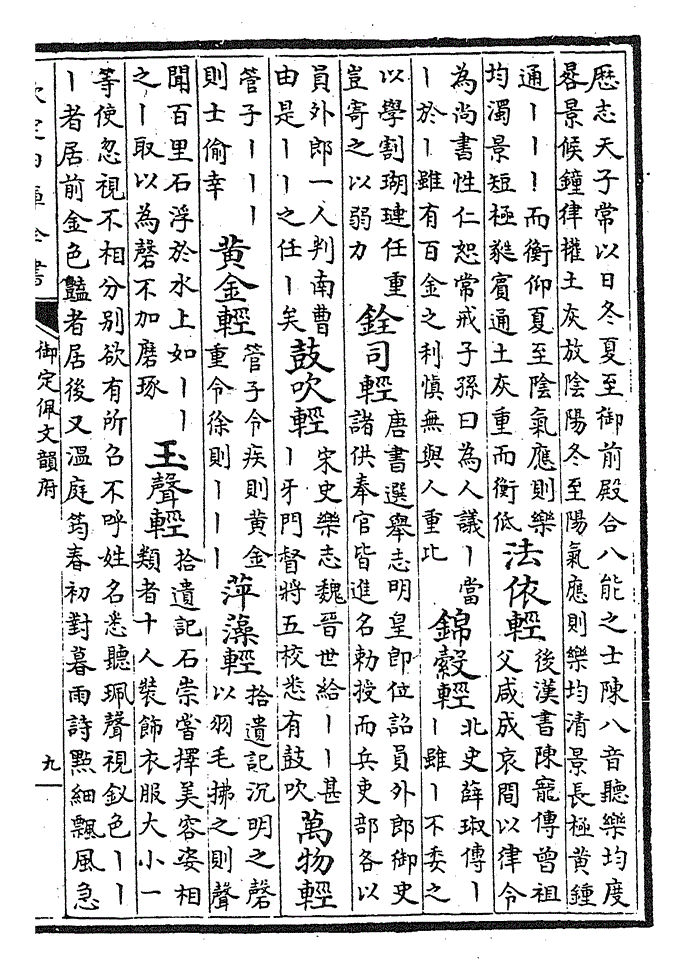 厯志天子常以日冬夏至御前殿合八能之士陳八音聽樂均度
晷景候鐘律權土灰放陰陽冬至陽氣應則樂均清景長極黄鐘
通丨丨丨而衡仰夏至陰氣應則樂
均濁景短極蕤賓通土灰重而衡低
法依輕
後漢書陳寵傳曾祖
父咸成哀間以律令
為尚書性仁恕常戒子孫曰為人議丨當
丨於丨雖有百金之利慎無與人重比
錦縠輕
北史薛琡傳丨
丨雖丨不委之
以學割瑚璉任重
豈寄之以弱力
銓司輕
唐書選舉志明皇即位詔員外郎御史
諸供奉官皆進名勅授而兵吏部各以
員外郎一人判南曹
由是丨丨之任丨矣
鼓吹輕
宋史樂志魏晉世給丨丨甚
丨牙門督將五校悉有鼓吹
萬物輕
管子丨丨丨
則士偷幸
黄金輕
管子令疾則黄金
重令徐則丨丨丨
萍藻輕
拾遺記沉明之磬
以羽毛拂之則聲
聞百里石浮於水上如丨丨
之丨取以為磬不加磨琢
玉聲輕
拾遺記石崇嘗擇美容姿相
類者十人裝飾衣服大小一
等使忽視不相分别欲有所召不呼姓名悉聽珮聲視釵色丨丨
丨者居前金色豔者居後又溫庭筠春初對暮雨詩㸃細飄風急
欽定四庫全書
御定佩文韻府
九